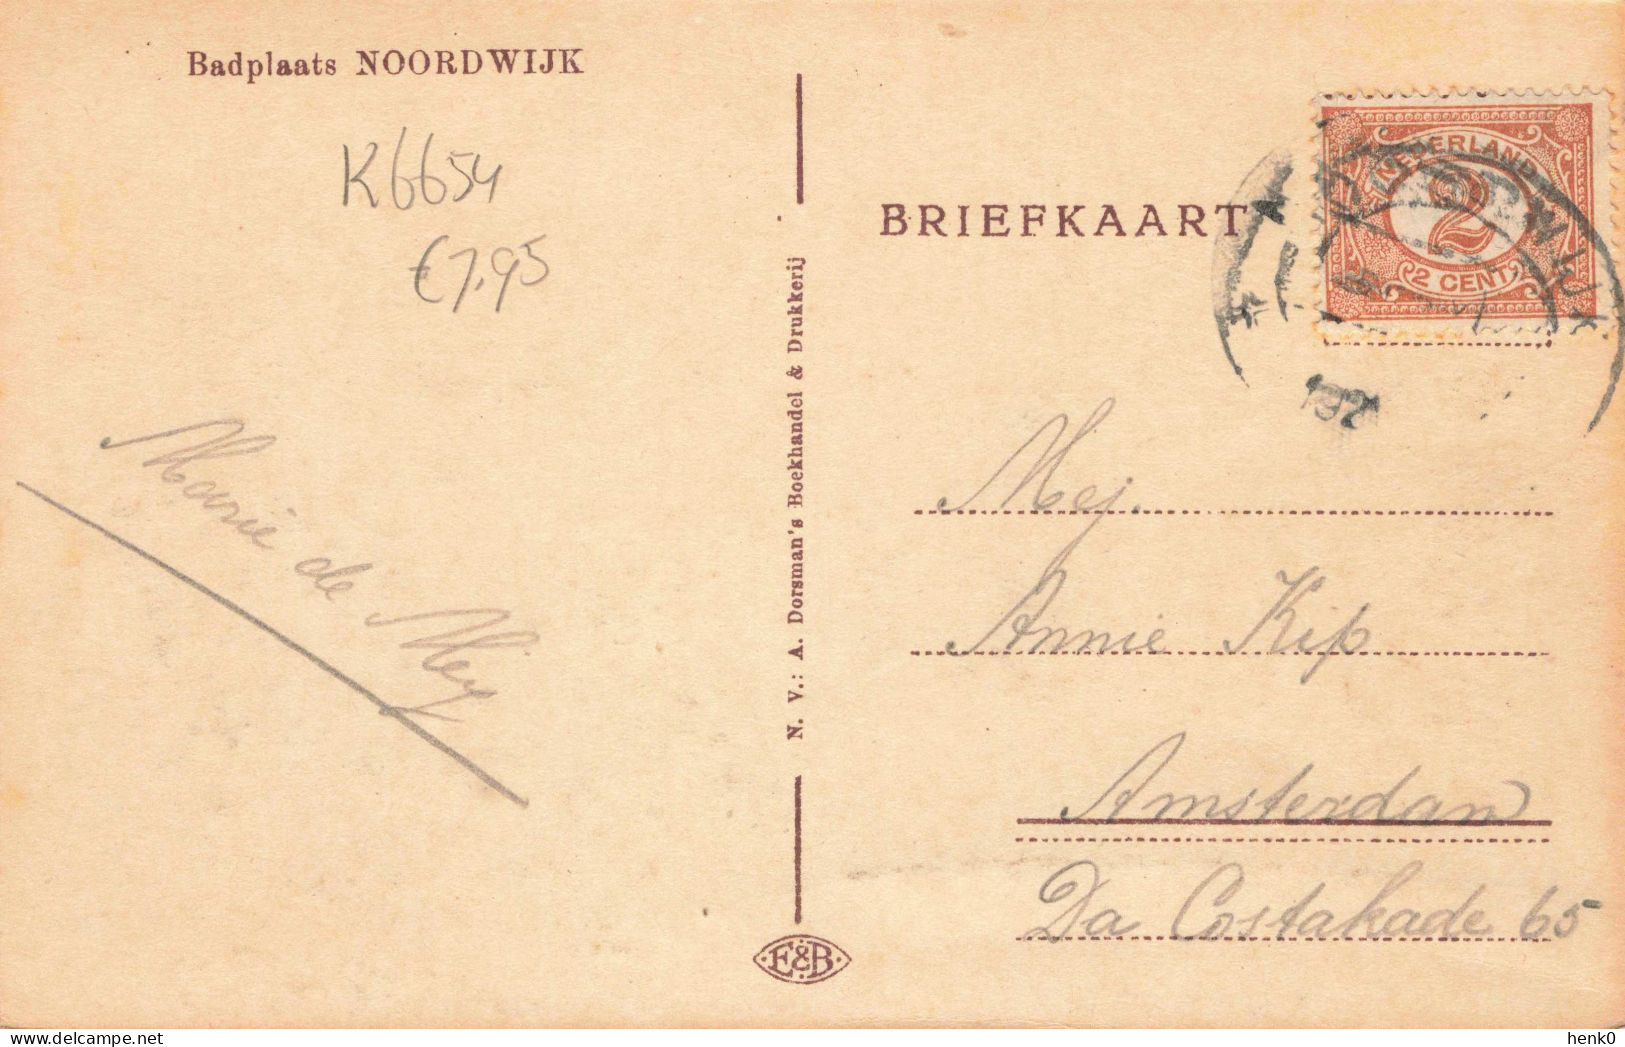 Badplaats NOORDWIJK
K6654
€7.95
Marie de Mey
N. V.: A. Dorsman's Boekhandel & Drukkerij
E&B
BRIEFKAART
NEDERLAND
2
2 CENT
Mej.
Annie Kip
Amsterdam
Da Costakade 65
delcampe.net
henk0